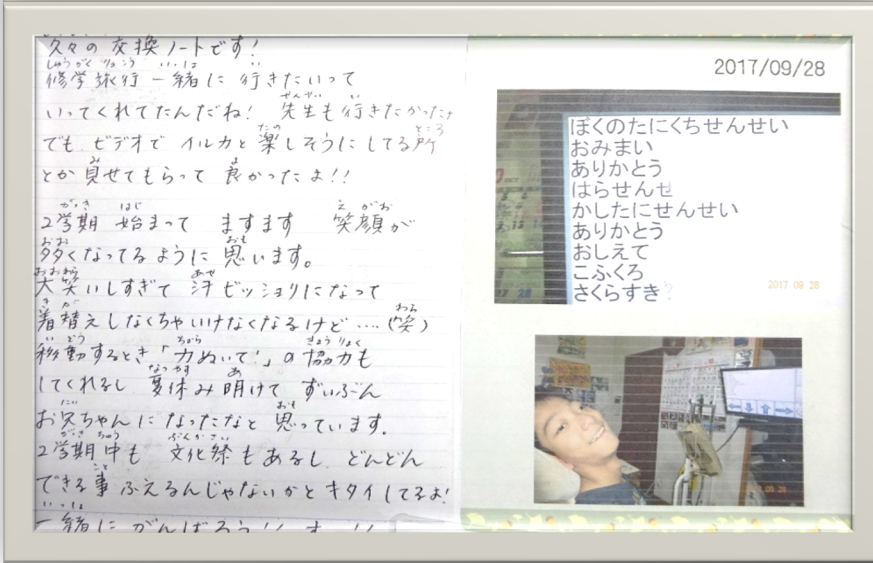 久々の交換ノートです!
修学旅行一緒に行きたいって
いってくれてたんだね! 先生も行きたかった
でも ビデオで イルカと楽しそうにしてる所
とか見せてもらって 良かったよ!!
2学期 始まって ますます 笑顔が
多くなってるように思います。
大笑いしすぎて 汗ビッショリになって
着替えしなくちゃいけなくなるけど…(笑)
移動するとき「力ぬいて!」の協力も
してくれるし 夏休み明けて ずいぶん
お兄ちゃんになったなと思っています。
2学期中も 文化祭もあるし どんどん
できる事ふえるんじゃないかとキタイしてるよ!
一緒にがんばろう!
2017/09/28
ぼくのたにくちせんせい
おみまい
ありかとう
はらせんせ
かしたにせんせい
ありかとう
おしえて
こふくろ
さくらすき?
2017 09 28